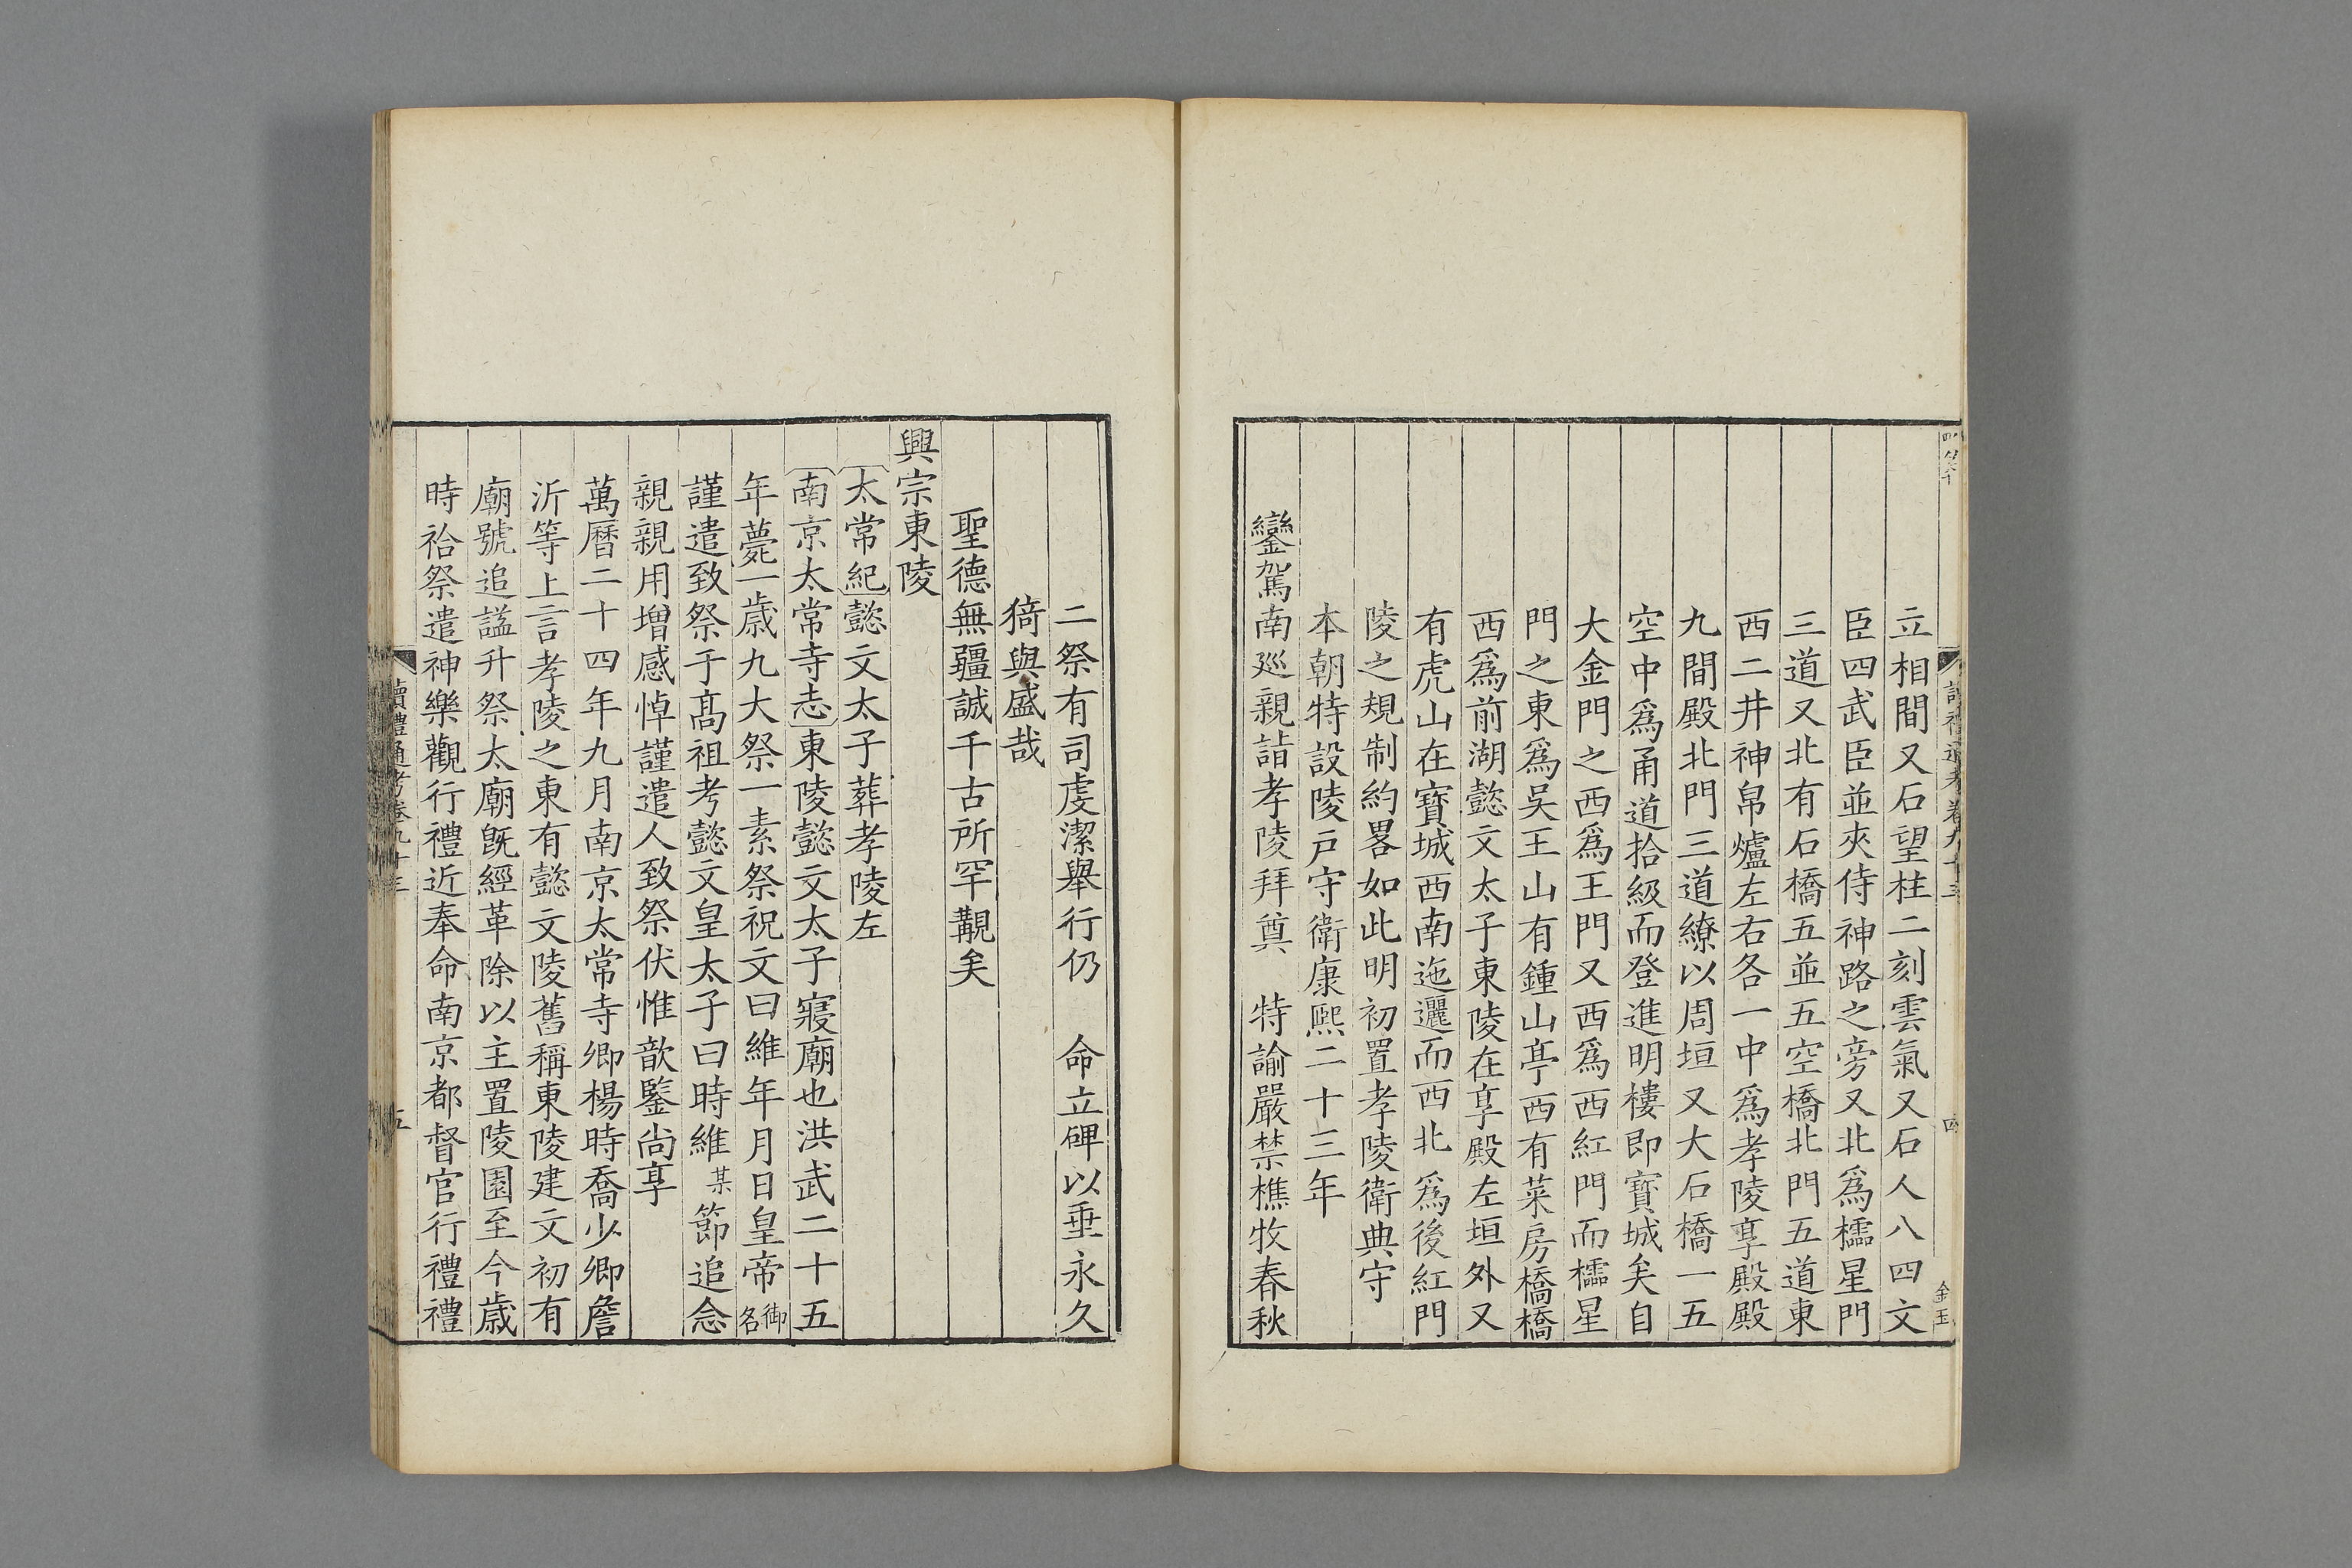 立相間又石望柱二刻雲氣又石人八四文
臣四武臣並夾侍神路之旁又北爲櫺星門
三道又北有石橋五並五空橋北門五道東
西二井神帛爐左右各一中爲孝陵享殿殿
九間殿北門三道繚以周垣又大石橋一五
空中爲甬道拾級而登進明樓即寶城矣自
大金門之西爲王門又西爲西紅門而櫺星
門之東爲吴王山有鍾山亭西有菜房橋橋
西爲前湖懿文太子東陵在享殿左垣外又
有虎山在寶城西南迤邐而西北爲後紅門
陵之規制約畧如此明初置孝陵衛典守
本朝特設陵戸守衛康熙二十三年
鑾駕南巡親詣孝陵拜奠　特諭嚴禁樵牧春秋
二祭有司虔潔舉行仍　命立碑以垂永久
猗與盛哉
聖德無疆誠千古所罕覯矣
興宗東陵
太常紀懿文太子葬孝陵左
南京太常寺志東陵懿文太子寢廟也洪武二十五
年薨一歲九大祭一素祭祝文曰維年月日皇帝御名
謹遣致祭于高祖考懿文皇太子曰時維某節追念
親親用增感悼謹遣人致祭伏惟歆鑒尚享
萬曆二十四年九月南京太常寺卿楊時喬少卿詹
沂等上言孝陵之東有懿文陵舊稱東陵建文初有
廟號追謚升祭太廟旣經革除以主置陵園至今歲
時祫祭遣神樂觀行禮近奉命南京都督官行禮禮
讀禮通考卷九十三
五
四
金玉